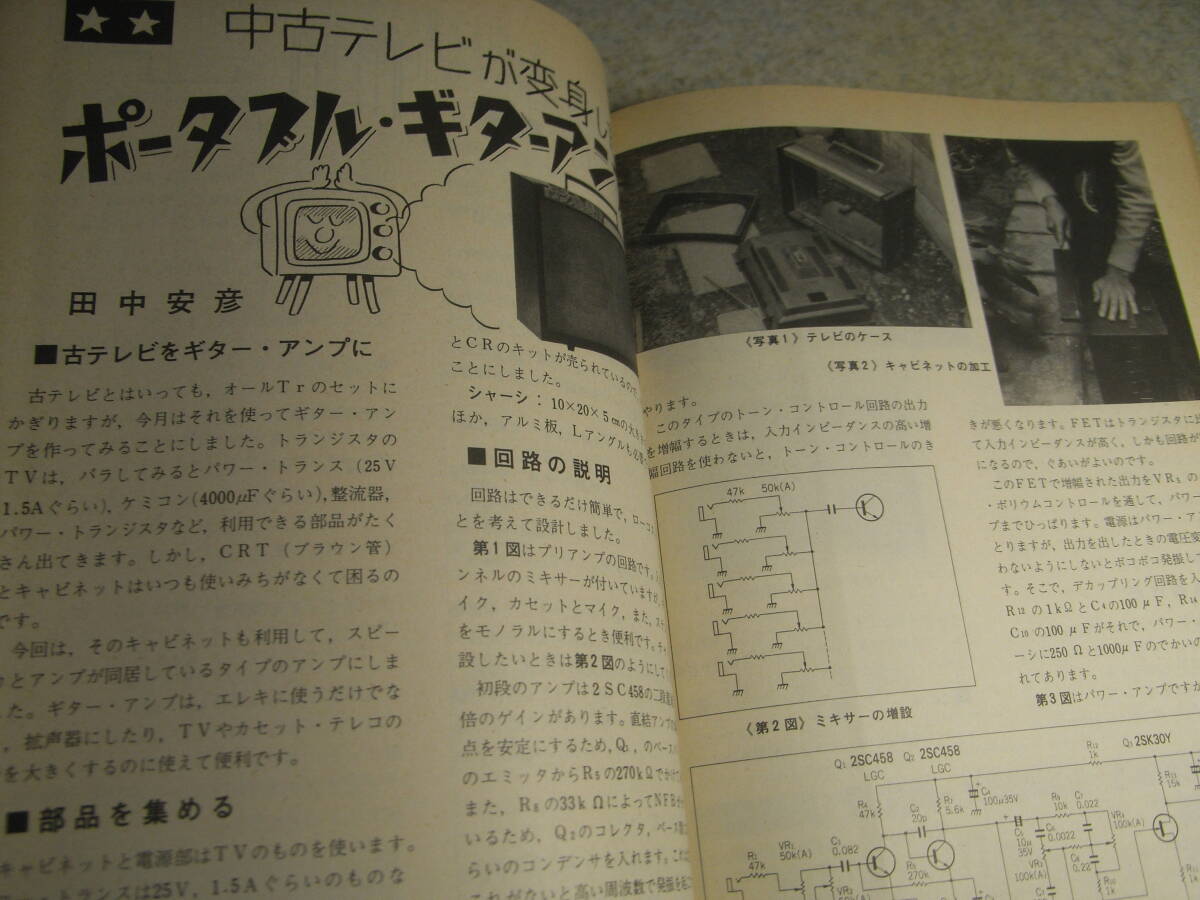 中古テレビが変身し
ポータブル・ギターアン
田中安彦
■古テレビをギター・アンプに
古テレビとはいっても，オールＴｒのセットに
かぎりますが，今月はそれを使ってギター・アン
プを作ってみることにしました。トランジスタの
ＴＶは，バラしてみるとパワー・トランス（25V
1.5Aぐらい），ケミコン(4000μFぐらい)，整流器，
パワー・トランジスタなど，利用できる部品がたく
さん出てきます。しかし，ＣＲＴ（ブラウン管）
とキャビネットはいつも使いみちがなくて困るの
です。
今回は，そのキャビネットも利用して，スピー
とアンプが同居しているタイプのアンプにしま
た。ギター・アンプは，エレキに使うだけでな
，拡声器にしたり，ＴＶやカセット・テレコの
を大きくするのに使えて便利です。
■部品を集める
キャビネットと電源部はＴＶのものを使います。
トランスは25V，1.5Aぐらいのものな
とＣＲのキットが売られているので，
ことにしました。
シャーシ：10×20×5㎝の大き
ほか，アルミ板，Ｌアングルも必要
■回路の説明
回路はできるだけ簡単で，ローコ
とを考えて設計しました。
第１図はプリアンプの回路です。
ンネルのミキサーが付いていますが，
イク，カセットとマイク，また，ステ
をモノラルにするとき便利です。
設したいときは第２図のようにして
初段のアンプは２SC458の二段直結
倍のゲインがあります。直結アンプ
点を安定にするため，Q₁，のベース
のエミッタからR₅の270kΩでかけ
また，R₈の33ｋΩによってNFBを
いるため，Q₂のコレクタ，ベース間に
らいのコンデンサを入れます。これ
これがないと高い周波数で発振を起
《写真１》テレビのケース
《写真２》キャビネットの加工
やります。
このタイプのトーン・コントロール回路の出力
を増幅するときは，入力インピーダンスの高い増
幅回路を使わないと，トーン・コントロールのき
47k
50k(A)
《第２図》ミキサーの増設
きが悪くなります。ＦＥＴはトランジスタに比
て入力インピーダンスが高く，しかも回路が
になるので，ぐあいがよいのです。
このFETで増幅された出力をVR₅の
・ボリウムコントロールを通して，パワー
プまでひっぱります。電源はパワー・ア
とりますが，出力を出したときの電圧変
わないようにしないとポコポコ発振し
す。そこで，デカップリング回路を入
R₁₂の1kΩとC₄の100μF，R₁₄
C₁₀の100μFがそれで，パワー・
ーシに250Ωと1000μFのでかいの
れてあります。
第３図はパワー・アンプですが
Q₁ 2SC458 LGC
Q₂ 2SC458 LGC
R₁₂ 1k
Q₃ 2SK30Y
R₄ 47k
C₂ 20p
R₇ 5.6k
C₄ 100μ35V
R₉ 10k
C₇ 0.022
R₁₃ 15k
R₁ 47k
VR₁ 50k(A)
C₁ 0.082
R₅ 270k
C₅ 10μ 35V
C₆ 0.0022
VR₄ 100k(A)
C₈ 0.22
VR₃ 100k(A)
VR₂ 50k(A)
R₁₀ 1k
R₁₁